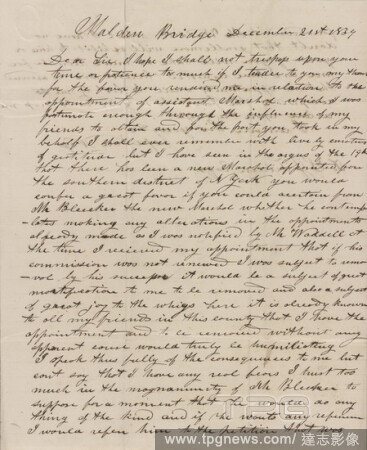 Malden Bridge December 21st 1839
Dear Sir I hope I shall not trespass upon your
time or patience to much if I tender to you my thanks
for the favor you rendered me in relation to the
appointment of assistant Marshal which I was
fortunate enough through the influence of my
friends to obtain and for the part you took in my
behalf I shall ever remember with lively emotions
of gratitude but I have seen in the argus of the 19th
that there has been a new Marshal appointed for
the southern district of N York you would
confer a great favor if you would ascertain from
Mr Bleecker the new Marshal whether he contemp
-lates making any alterations in the appointments
already made as I was notified by Mr Waddell at
the time I received my appointment that if his
commission was not renewed I was subject to remo
-val by his successor it would be a subject of great
mortification to me to be removed and also a subject
of great joy to the whigs here it is already known
to all my friends in this county that I have the
appointment and to be removed without any
apparent cause would truly be humiliating
I speak thus fully of the consequences to me but
cant say that I have any real fears I must too
much in the magnanimity of Mr Bleecker to
suppose for a moment that he would do any
thing of the kind and if he wants any reference
I would refer him to the petition that was
www.tpgnews.com / 達志影像